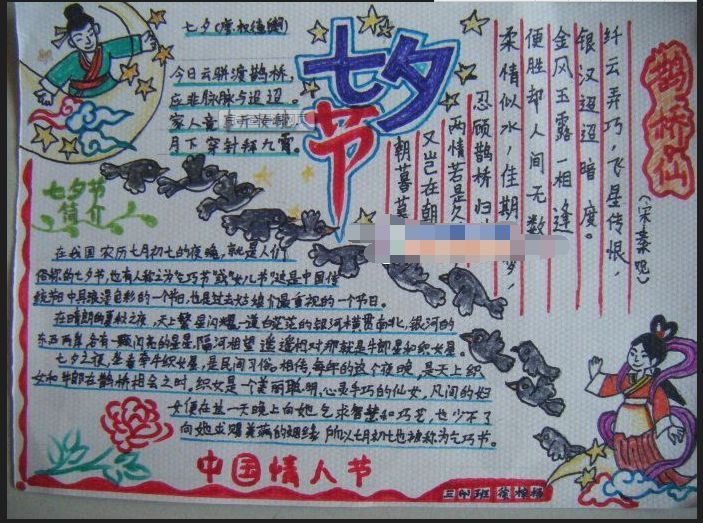 七夕节
七夕(唐 权德舆)
今日云骈渡鹊桥，
应非脉脉与迢迢。
家人竞喜开妆镜
月下穿针拜九霄。
鹊桥仙
(宋秦观)
纤云弄巧，飞星传恨，
银汉迢迢暗度。
金风玉露一相逢
便胜却人间无数
柔情似水，佳期
梦，
忍顾鹊桥归
两情若是久
又岂在朝
朝暮暮
七夕节
简介
在我国农历七月初七的夜晚，就是人们
俗称的七夕节，也有人称之为"乞巧节"或"女儿节"这是中国传
统节日中具浪漫色彩的一个节日，也是过去姑娘们最重视的一个节日。
在晴朗的夏秋之夜，天上繁星闪耀，一道白茫茫的银河横贯南北，银河的
东西两岸，各有一颗闪亮的星星，隔河相望，遥遥相对那就是牛郎星和织女星。
七夕之夜，坐看牵牛织女星，是民间习俗。相传，每年的这个夜晚，是天上织
女和牛郎在鹊桥相会之时。织女是一个美丽聪明，心灵手巧的仙女，凡间的妇
女便在这一天晚上向她乞求智慧和巧艺，也少不了
向她求赐美满的姻缘，所以七月初七也被称为乞巧节。
中国情人节